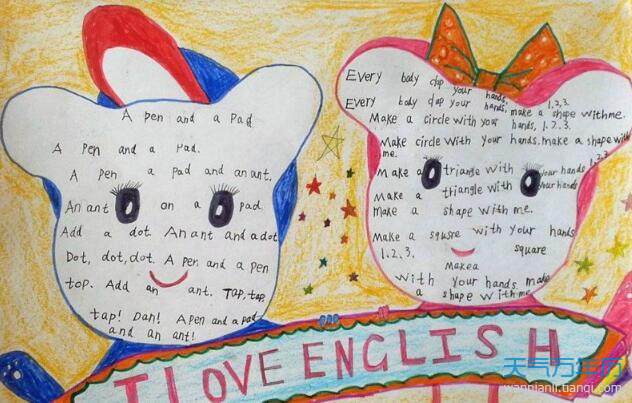 A pen and a pad.
A pen and a pad.
A pen a pad and an ant.
An ant on a pad.
Add a dot. An ant and a dot
Dot, dot, dot. A pen and a pen
top. Add an ant. Tap, tap,
tap! Dan! A pen and a pad
and an ant!
Every body clap your hands,
Every body clap your hands, 1.2.3.
make a shape with me.
Make a circle with your hands, 1.2.3.
Make circle with your hands. make a shape with
me.
Make a triangle with your hands 1.2.3
Make a triangle with your hands
Make a shape with me.
Make a square with your hands
1.2.3. square
Make a
with your hands make
a shape with me
I LOVE ENGLISH
天气万年历
wannianli.tianqi.com